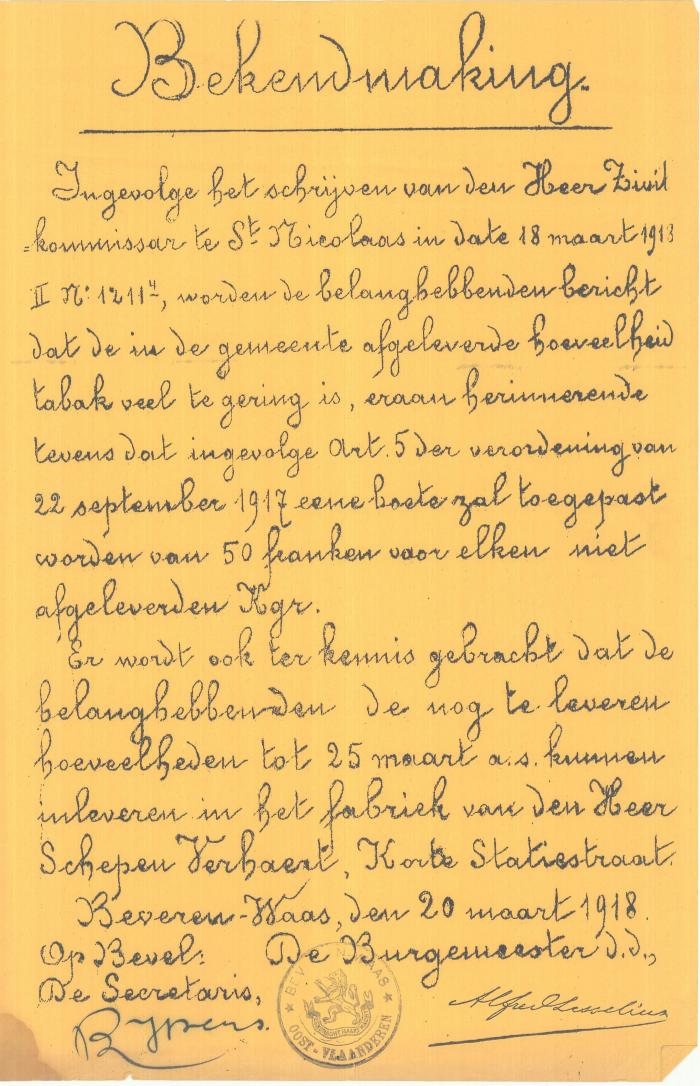 Bekendmaking.
Ingevolge het schrijven van den Heer Zivil
=kommissar te St Nicolaas in date 18 maart 1918
II No: 12114, worden de belanghebbenden bericht
dat de in de gemeente afgeleverde hoeveelheid
tabak veel te gering is, eraan herinnerende
tevens dat ingevolge Art. 5 der verordening van
22 september 1917 eene boete zal toegepast
worden van 50 franken voor elken niet
afgeleverden Kgr.
Er wordt ook ter kennis gebracht dat de
belanghebbenden de nog te leveren
hoeveelheden tot 25 maart a.s. kunnen
inleveren in het fabriek van den Heer
Schepen Verhaert, Korte Statiestraat.
Beveren-Waas, den 20 maart 1918.
Op Bevel: De Burgemeester d.d.,
De Secretaris,
OOST-VLAANDEREN